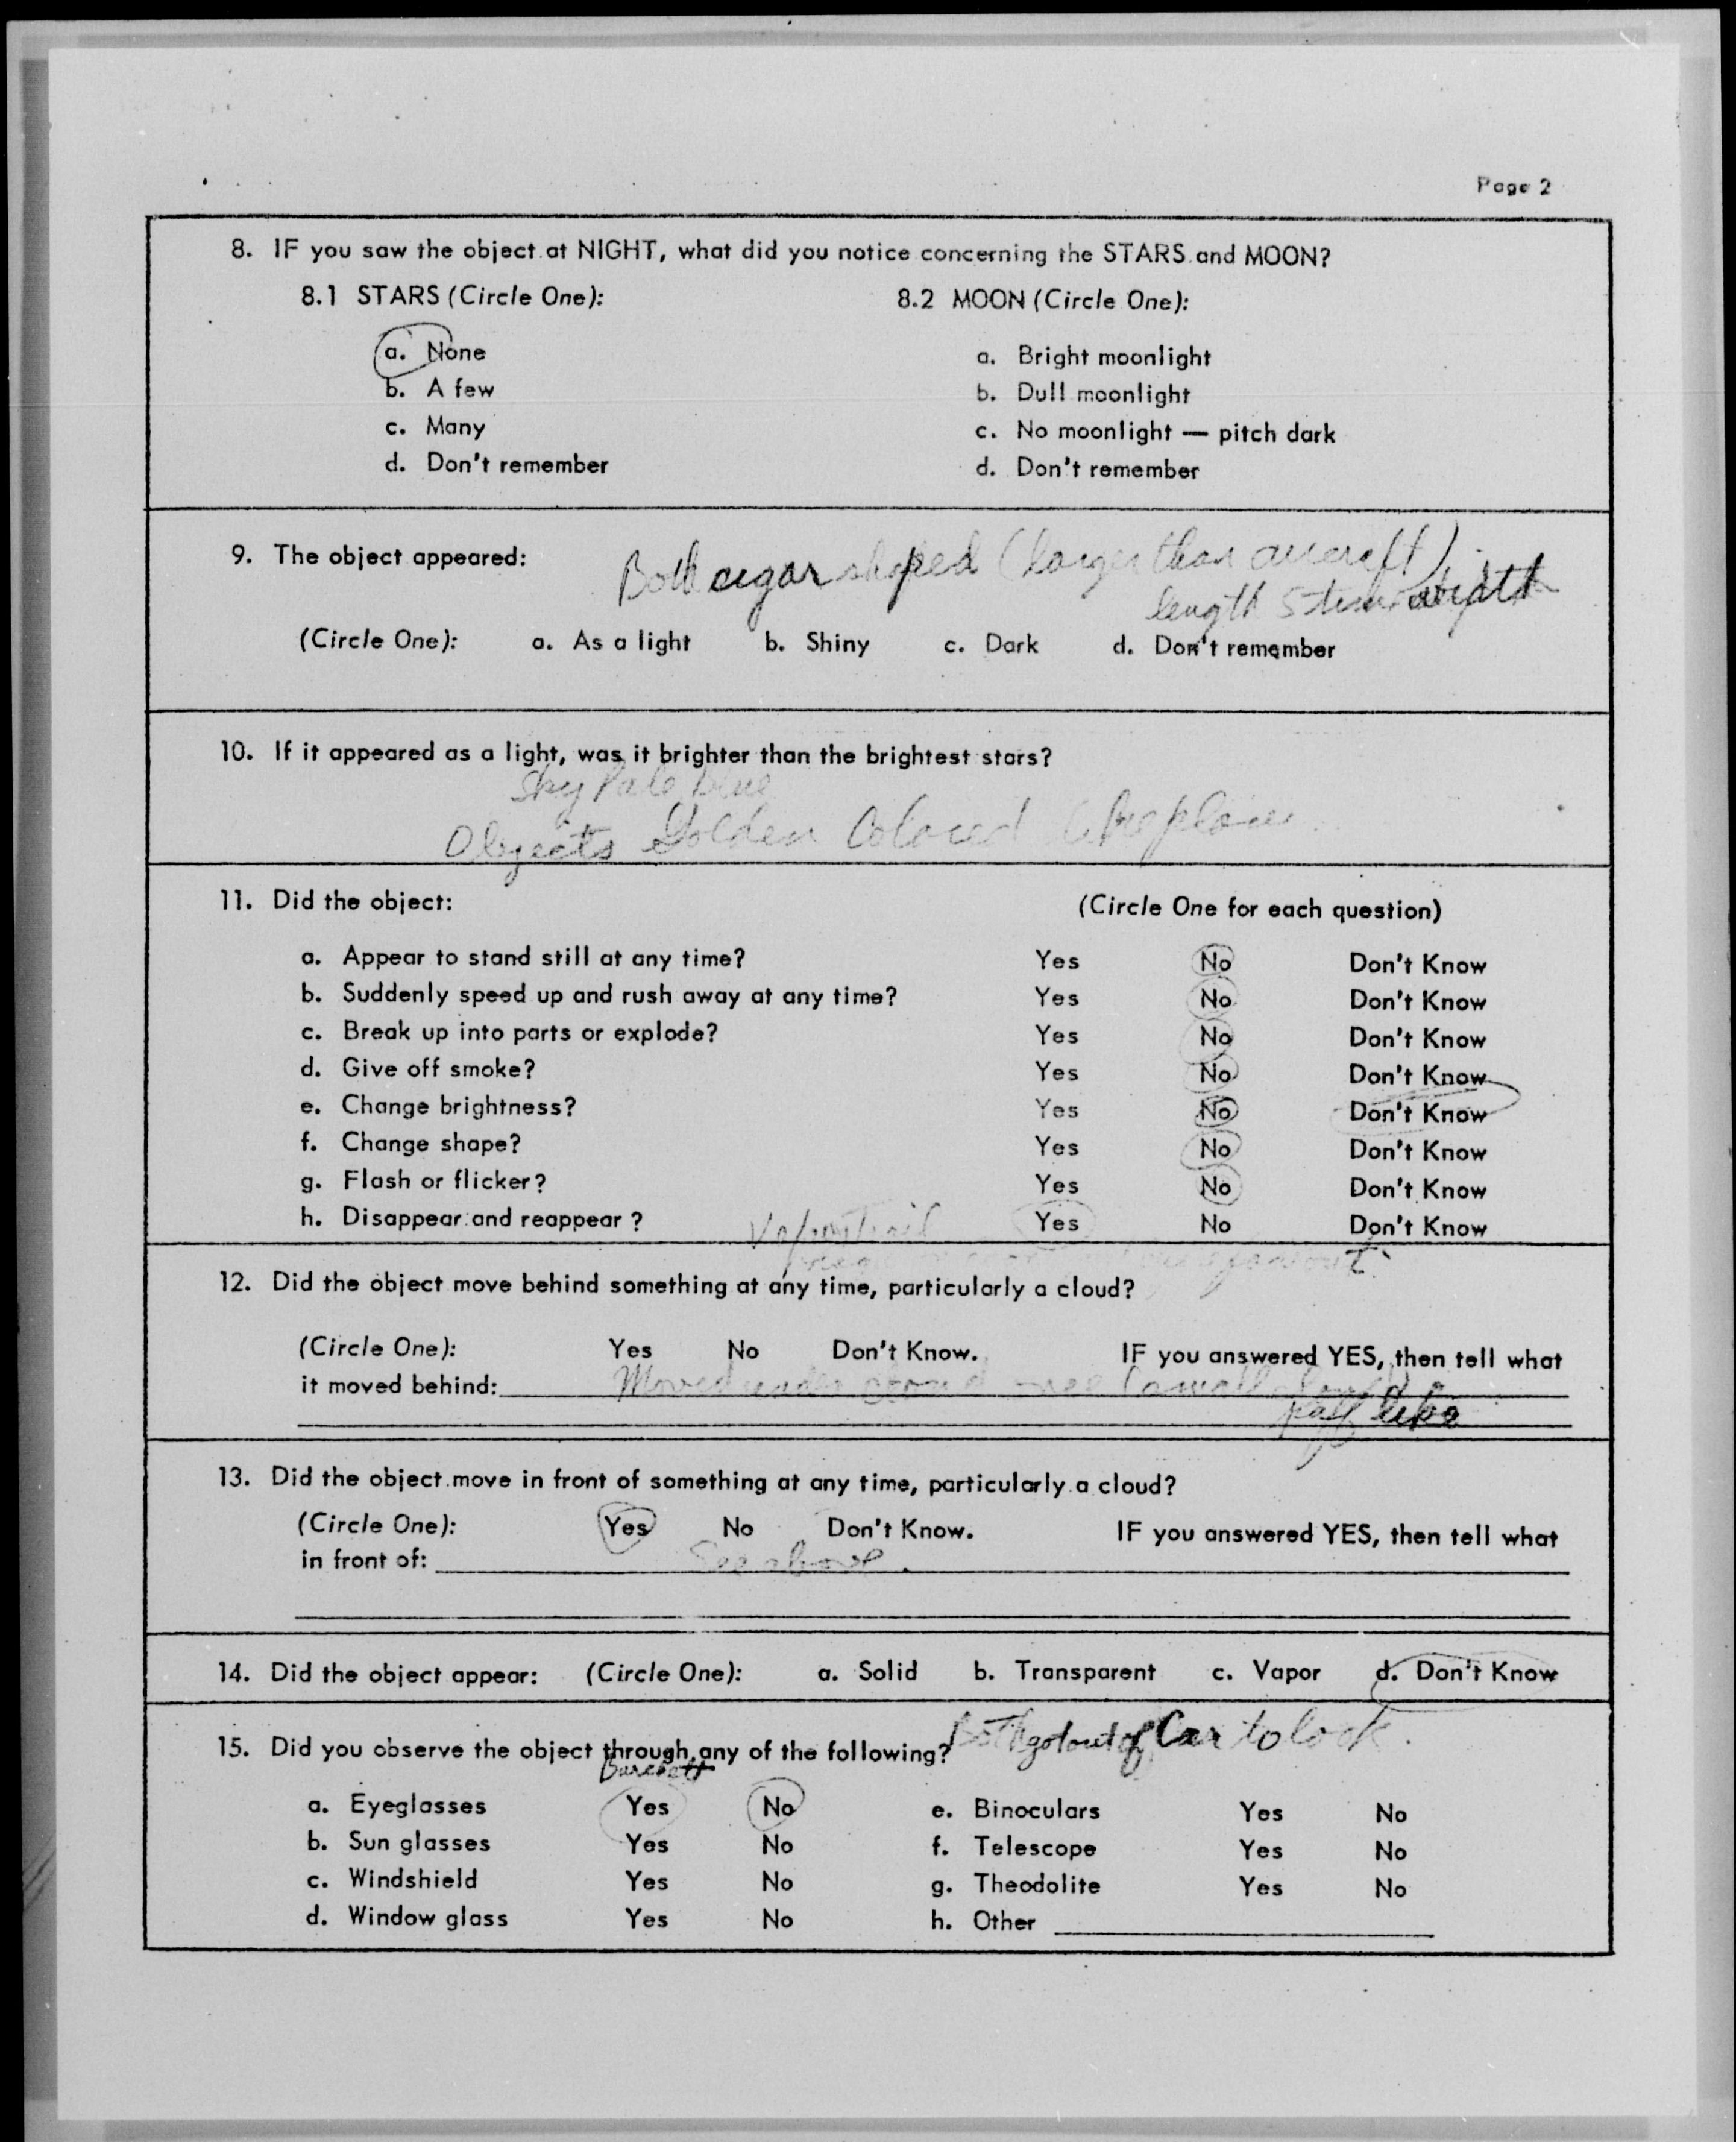 Page 2
8. IF you saw the object at NIGHT, what did you notice concerning the STARS and MOON?
8.1 STARS (Circle One): 8.2 MOON (Circle One):
a. None a. Bright moonlight
b. A few b. Dull moonlight
c. Many c. No moonlight — pitch dark
d. Don't remember d. Don't remember
9. The object appeared: Both cigar shaped (larger than aircraft)
length 5 times width
(Circle One): a. As a light b. Shiny c. Dark d. Don't remember
10. If it appeared as a light, was it brighter than the brightest stars?
Sky Pale blue
Objects Golden Colored
11. Did the object: (Circle One for each question)
a. Appear to stand still at any time? Yes No Don't Know
b. Suddenly speed up and rush away at any time? Yes No Don't Know
c. Break up into parts or explode? Yes No Don't Know
d. Give off smoke? Yes No Don't Know
e. Change brightness? Yes No Don't Know
f. Change shape? Yes No Don't Know
g. Flash or flicker? Yes No Don't Know
h. Disappear and reappear? Yes No Don't Know
Vapor trail
12. Did the object move behind something at any time, particularly a cloud?
(Circle One): Yes No Don't Know. IF you answered YES, then tell what
it moved behind: Moved under cloud (small cloud)
puff like
13. Did the object move in front of something at any time, particularly a cloud?
(Circle One): Yes No Don't Know. IF you answered YES, then tell what
in front of: See above.
14. Did the object appear: (Circle One): a. Solid b. Transparent c. Vapor d. Don't Know
15. Did you observe the object through any of the following? Both got out of Car to look.
Burchett
a. Eyeglasses Yes No e. Binoculars Yes No
b. Sun glasses Yes No f. Telescope Yes No
c. Windshield Yes No g. Theodolite Yes No
d. Window glass Yes No h. Other